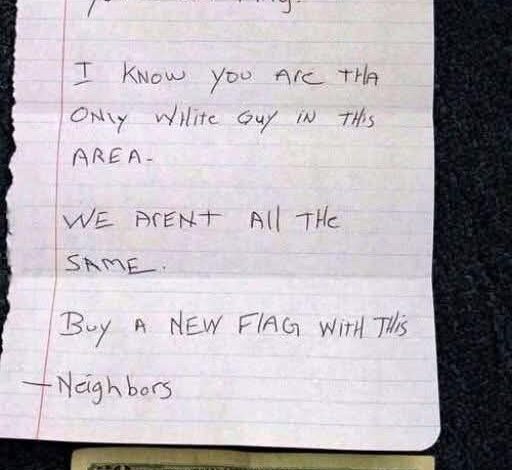 I KNOW YOU ArE THA
ONly WHite Guy iN THis
AREA-
WE ArENt All THe
SAME.
Buy A NEW FlAG WiTH THis
-Neighbors